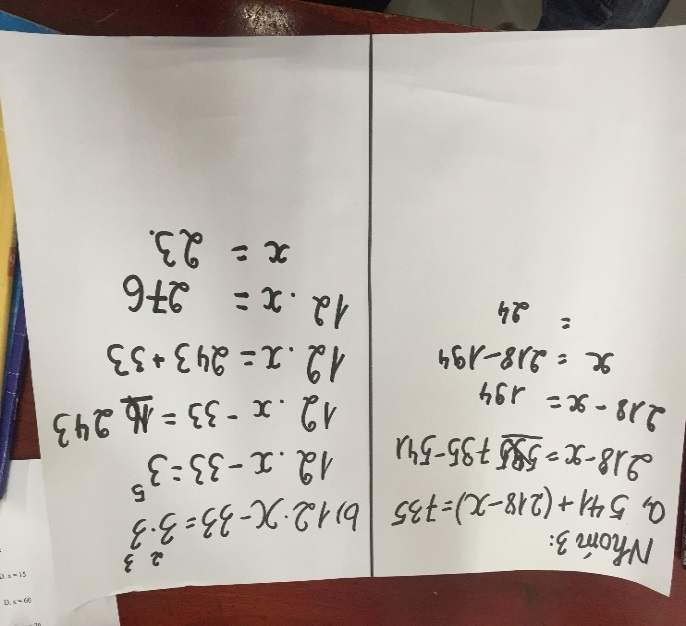 Nhóm 3:
a, 541+(218-x)=735
218-x= 735-541
218-x= 194
x = 218-194
= 24
b) 12.x-33=3².3³
12.x-33=3⁵
12.x-33= 243
12.x=243+33
12.x= 276
x = 23.
D. x=15
D. x=60